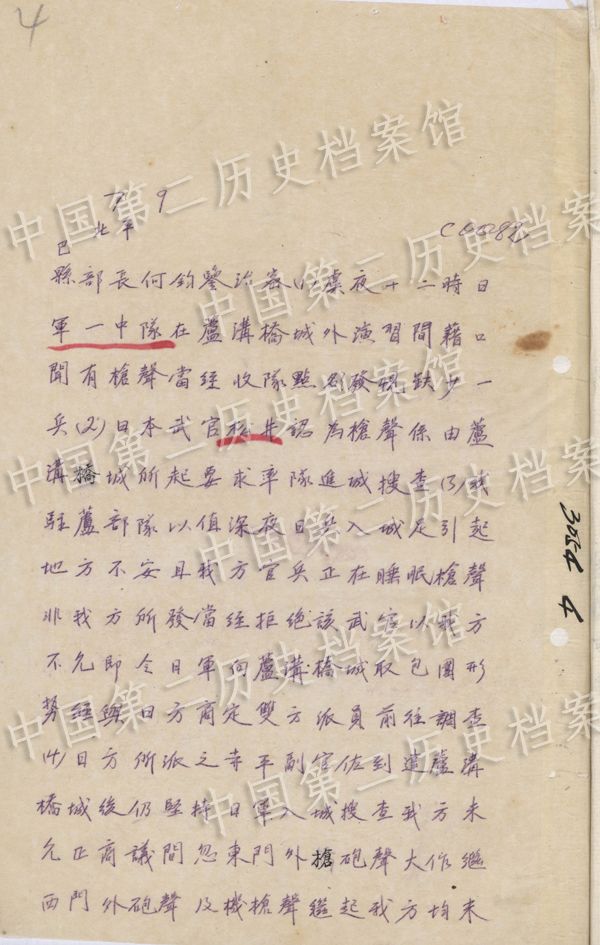 4
7 9
北平
縣部長何鈞鑒治密(1)虞夜十二時日
軍一中隊在蘆溝橋城外演習間藉口
聞有槍聲當經收隊點名發現缺少一
兵(2)日本武官松井認為槍聲係由蘆
溝橋城所起要求率隊進城搜查(3)我
駐蘆部隊以值深夜日兵入城足引起
地方不安且我方官兵正在睡眠槍聲
非我方所發當經拒絕該武官以我方
不允即令日軍向蘆溝橋城取包圍形
勢經與日方商定雙方派員前往調查
(4)日方所派之寺平副官佐到達蘆溝
橋城後仍堅持日軍入城搜查我方未
允正商議間忽東門外槍砲聲大作繼
西門外砲聲及機槍聲繼起我方均未
中国第二历史档案馆